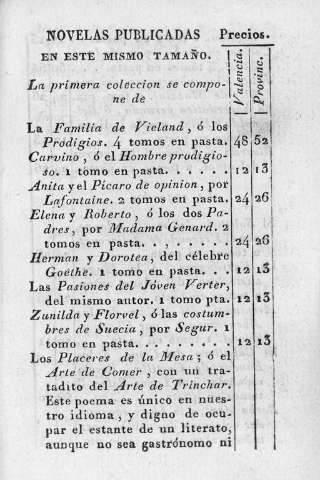 NOVELAS PUBLICADAS Precios.
EN ESTE MISMO TAMAÑO.
Valencia.
Provinc.
La primera coleccion se compo-
ne de
La Familia de Vieland, ó los
Prodigios. 4 tomos en pasta. 48 52
Carvino, ó el Hombre prodigio-
so. 1 tomo en pasta. . . . . . 12 13
Anita y el Pícaro de opinion, por
Lafontaine. 2 tomos en pasta. 24 26
Elena y Roberto, ó los dos Pa-
dres, por Madama Genard. 2
tomos en pasta. . . . . . . . 24 26
Herman y Dorotea, del célebre
Goëthe. 1 tomo en pasta. . . 12 13
Las Pasiones del Jóven Verter,
del mismo autor. 1 tomo pta. 12 13
Zunilda y Florvel, ó las costum-
bres de Suecia, por Segur. 1
tomo en pasta. . . . . . . . . 12 13
Los Placeres de la Mesa; ó el
Arte de Comer, con un tra-
tadito del Arte de Trinchar.
Este poema es único en nues-
tro idioma, y digno de ocu-
par el estante de un literato,
aunque no sea gastrónomo ni